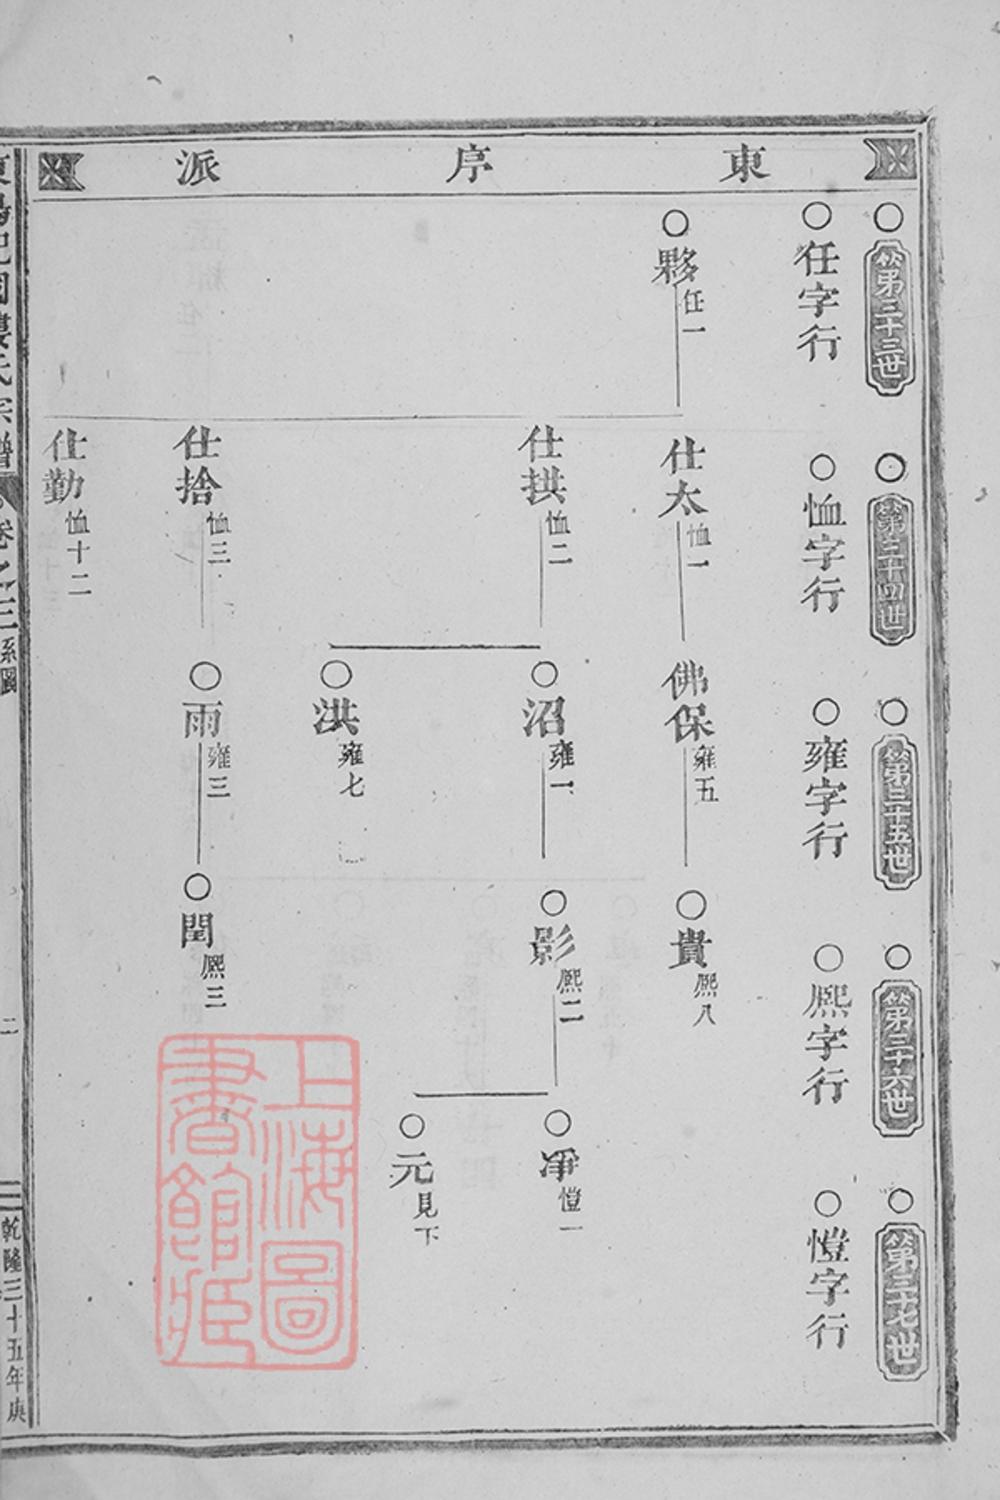 東序派
第三十三世
任字行
第三十四世
恤字行
第三十五世
雍字行
第三十六世
熙字行
第三十七世
愷字行
夥 任一
仕太 恤一
佛保 雍五
貴 熙八
仕拱 恤二
沼 雍一
影 熙二
愷一
元 見下
洪 雍七
仕捨 恤三
雨 雍三
閏 熙三
仕勤 恤十二
氏宗譜
卷之三
系圖
二
乾隆三十五年庚
上海圖書館藏